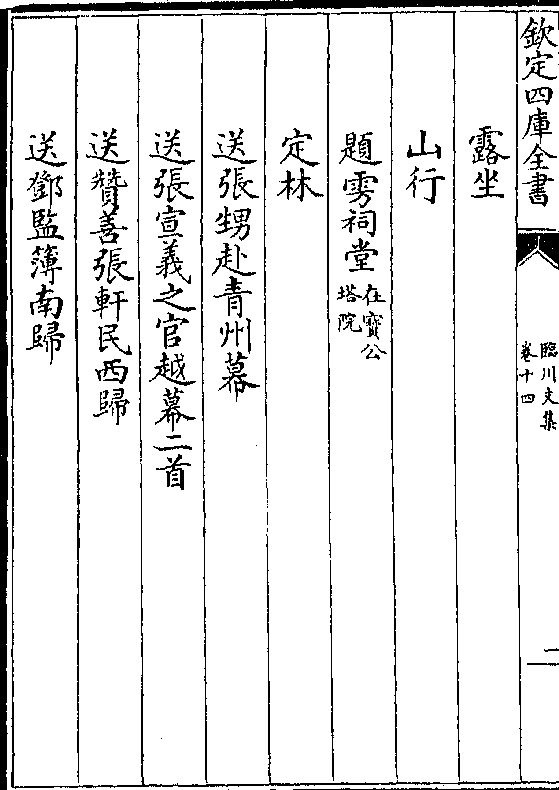 欽定四庫全書
臨川文集
卷十四
一
露坐
山行
題雱祠堂在寶公塔院
定林
送張甥赴青州幕
送張宣義之官越幕二首
送贊善張軒民西歸
送鄧監簿南歸